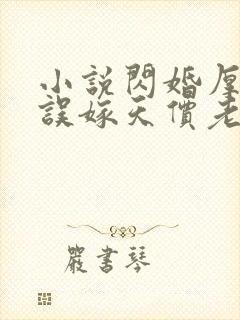 小説閃婚厚
誤嫁天價老
嚴書琴